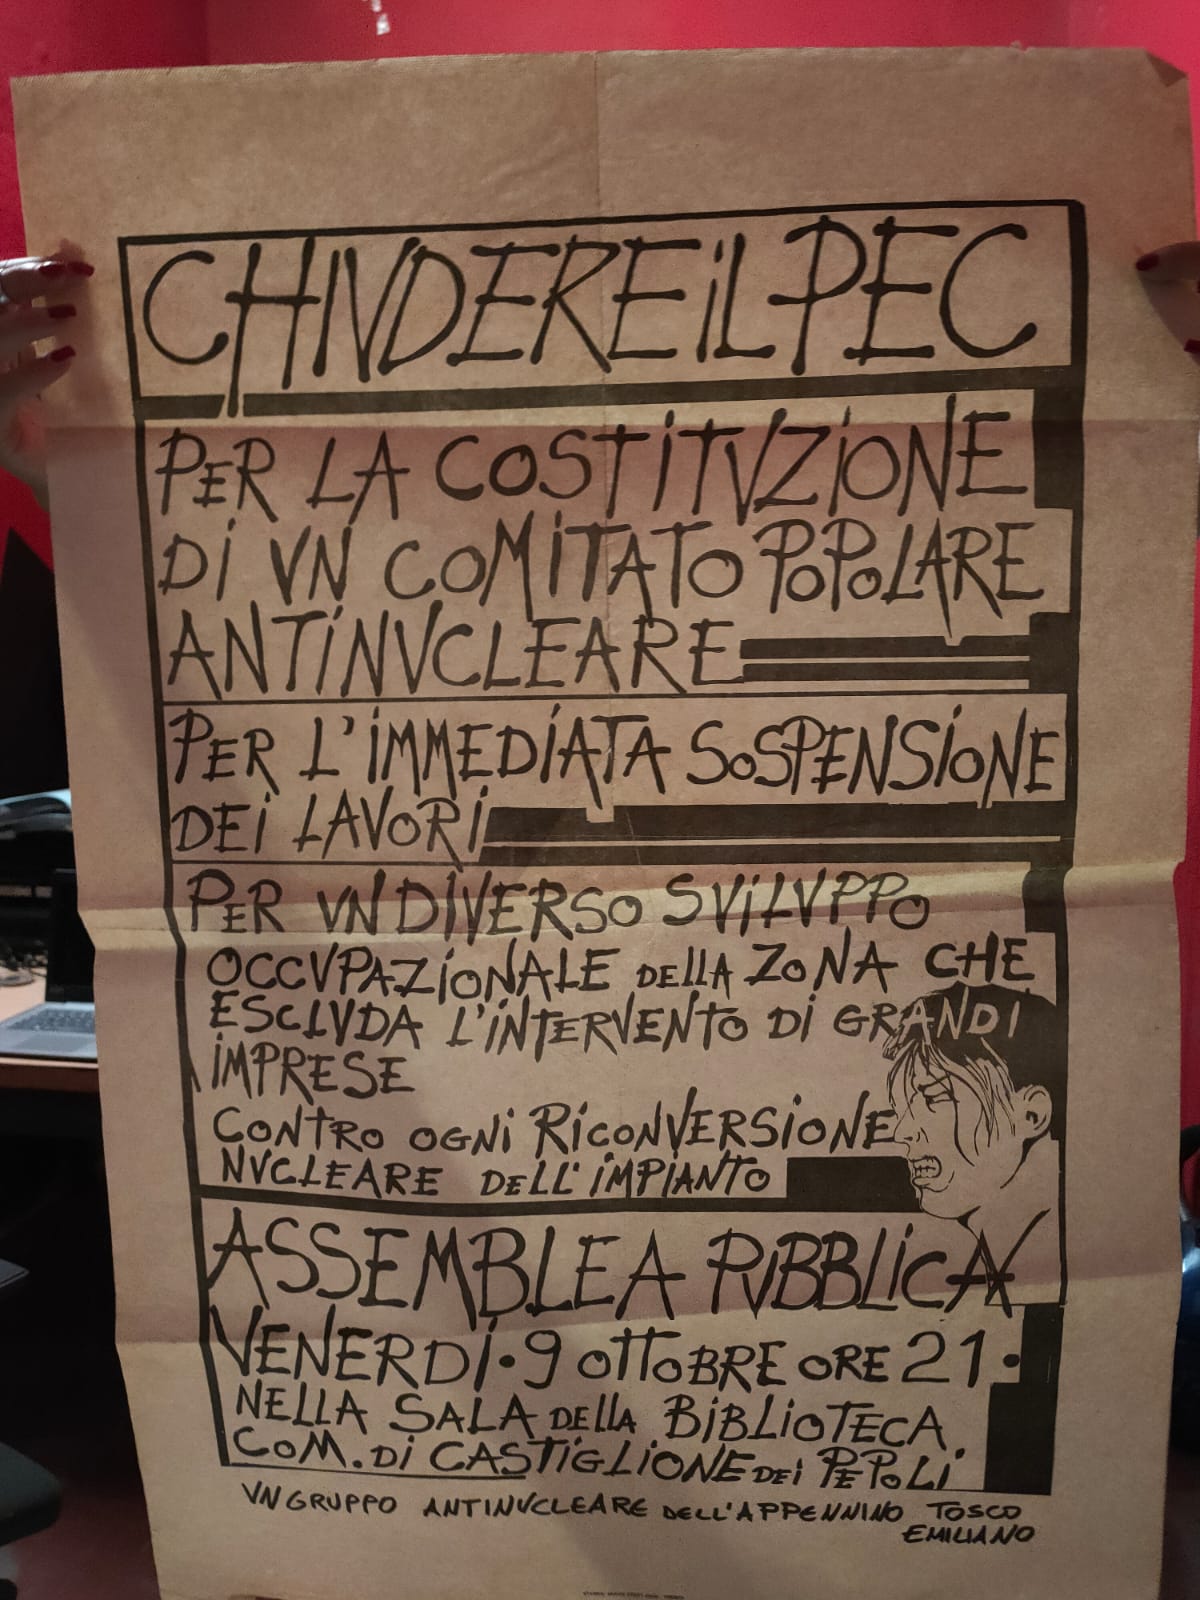 CHIVDERE iL PEC
PER LA COSTiTVZiONE
Di VN COMiTATO POPOLARE
ANTiNVCLEARE
PER L'iMMEDiATA SOSPENSiONE
DEi LAVORi
PER VN DIVERSO SViLVPPO
OCCVPAZiONALE DELLA ZONA CHE
ESCLVDA L'iNTERVENTO Di GRANDI
iMPRESE
CONTRO OGNi RiCONVERSiONE
NVCLEARE DELL'iMPiANTO
ASSEMBLEA PUBBLiCA
VENERDi • 9 OTTOBRE ORE 21 •
NELLA SALA DELLA BiBLiOTECA
COM. Di CASTiGLiONE DEi PEPOLi
VN GRUPPO ANTINVCLEARE DELL'APPENNINO TOSCO
EMILIANO